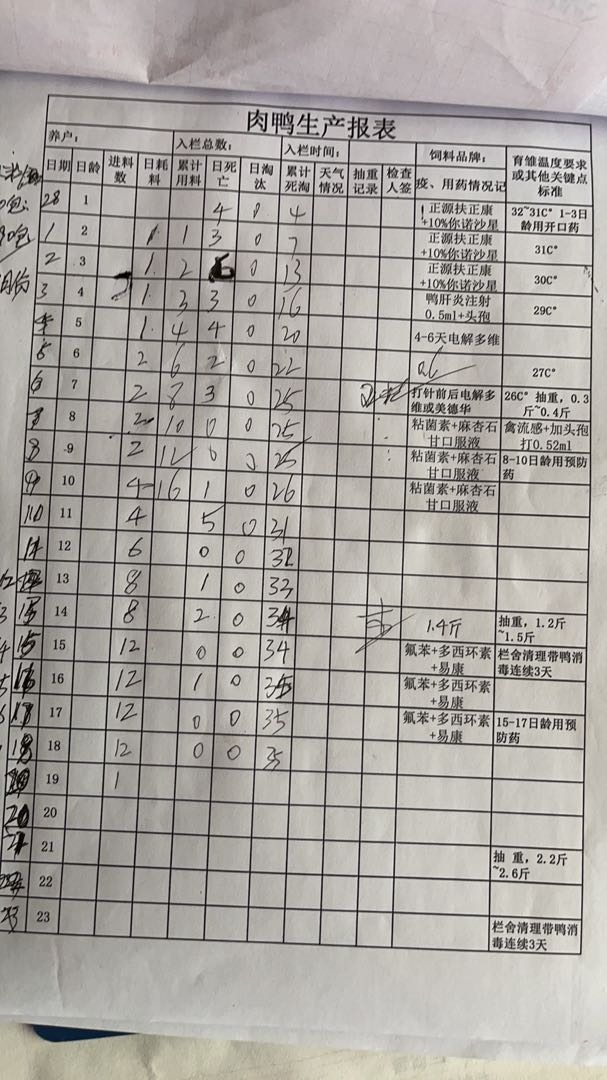 肉鸭生产报表
养户： 入栏总数： 入栏时间： 饲料品牌： 育雏温度要求或其他关键点标准
日期 日龄 进料数 日耗料 累计用料 日死亡 日淘汰 累计死淘 天气情况 抽重记录 检查人签 疫、用药情况记
28 1 4 0 4 正源扶正康+10%你诺沙星 32~31C° 1-3日龄用开口药
1 2 1 1 3 0 7 正源扶正康+10%你诺沙星 31C°
2 3 1 2 6 0 13 正源扶正康+10%你诺沙星 30C°
3 4 1 3 3 0 16 鸭肝炎注射0.5ml+头孢 29C°
5 1 4 4 0 20 4-6天电解多维
6 2 6 2 0 22 27C°
6 7 2 8 3 0 25 打针前后电解多维或美德华 26C° 抽重，0.3斤~0.4斤
8 2 10 0 0 25 粘菌素+麻杏石甘口服液 禽流感+加头孢打0.52ml
8 9 2 12 0 0 25 粘菌素+麻杏石甘口服液 8-10日龄用预防药
10 4 16 1 0 26 粘菌素+麻杏石甘口服液
11 4 5 0 31
12 6 0 0
13 8 1 0 33
14 8 2 0 34 1.4斤 抽重，1.2斤~1.5斤
15 12 0 0 34 氟苯+多西环素+易康 栏舍清理带鸭消毒连续3天
16 12 1 0 35 氟苯+多西环素+易康
17 12 0 0 35 氟苯+多西环素+易康 15-17日龄用预防药
18 12 0 0 35
19 1
20
21 抽 重，2.2斤~2.6斤
22
23 栏舍清理带鸭消毒连续3天